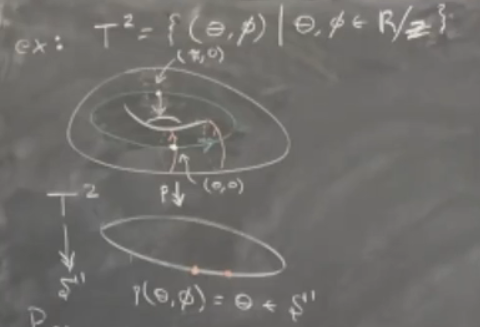 ex: T² = { (θ, φ) | θ, φ ∈ R/Z }
(π, 0)
(0,0)
P↓
T²
↓
S¹
P(θ, φ) = θ ∈ S¹